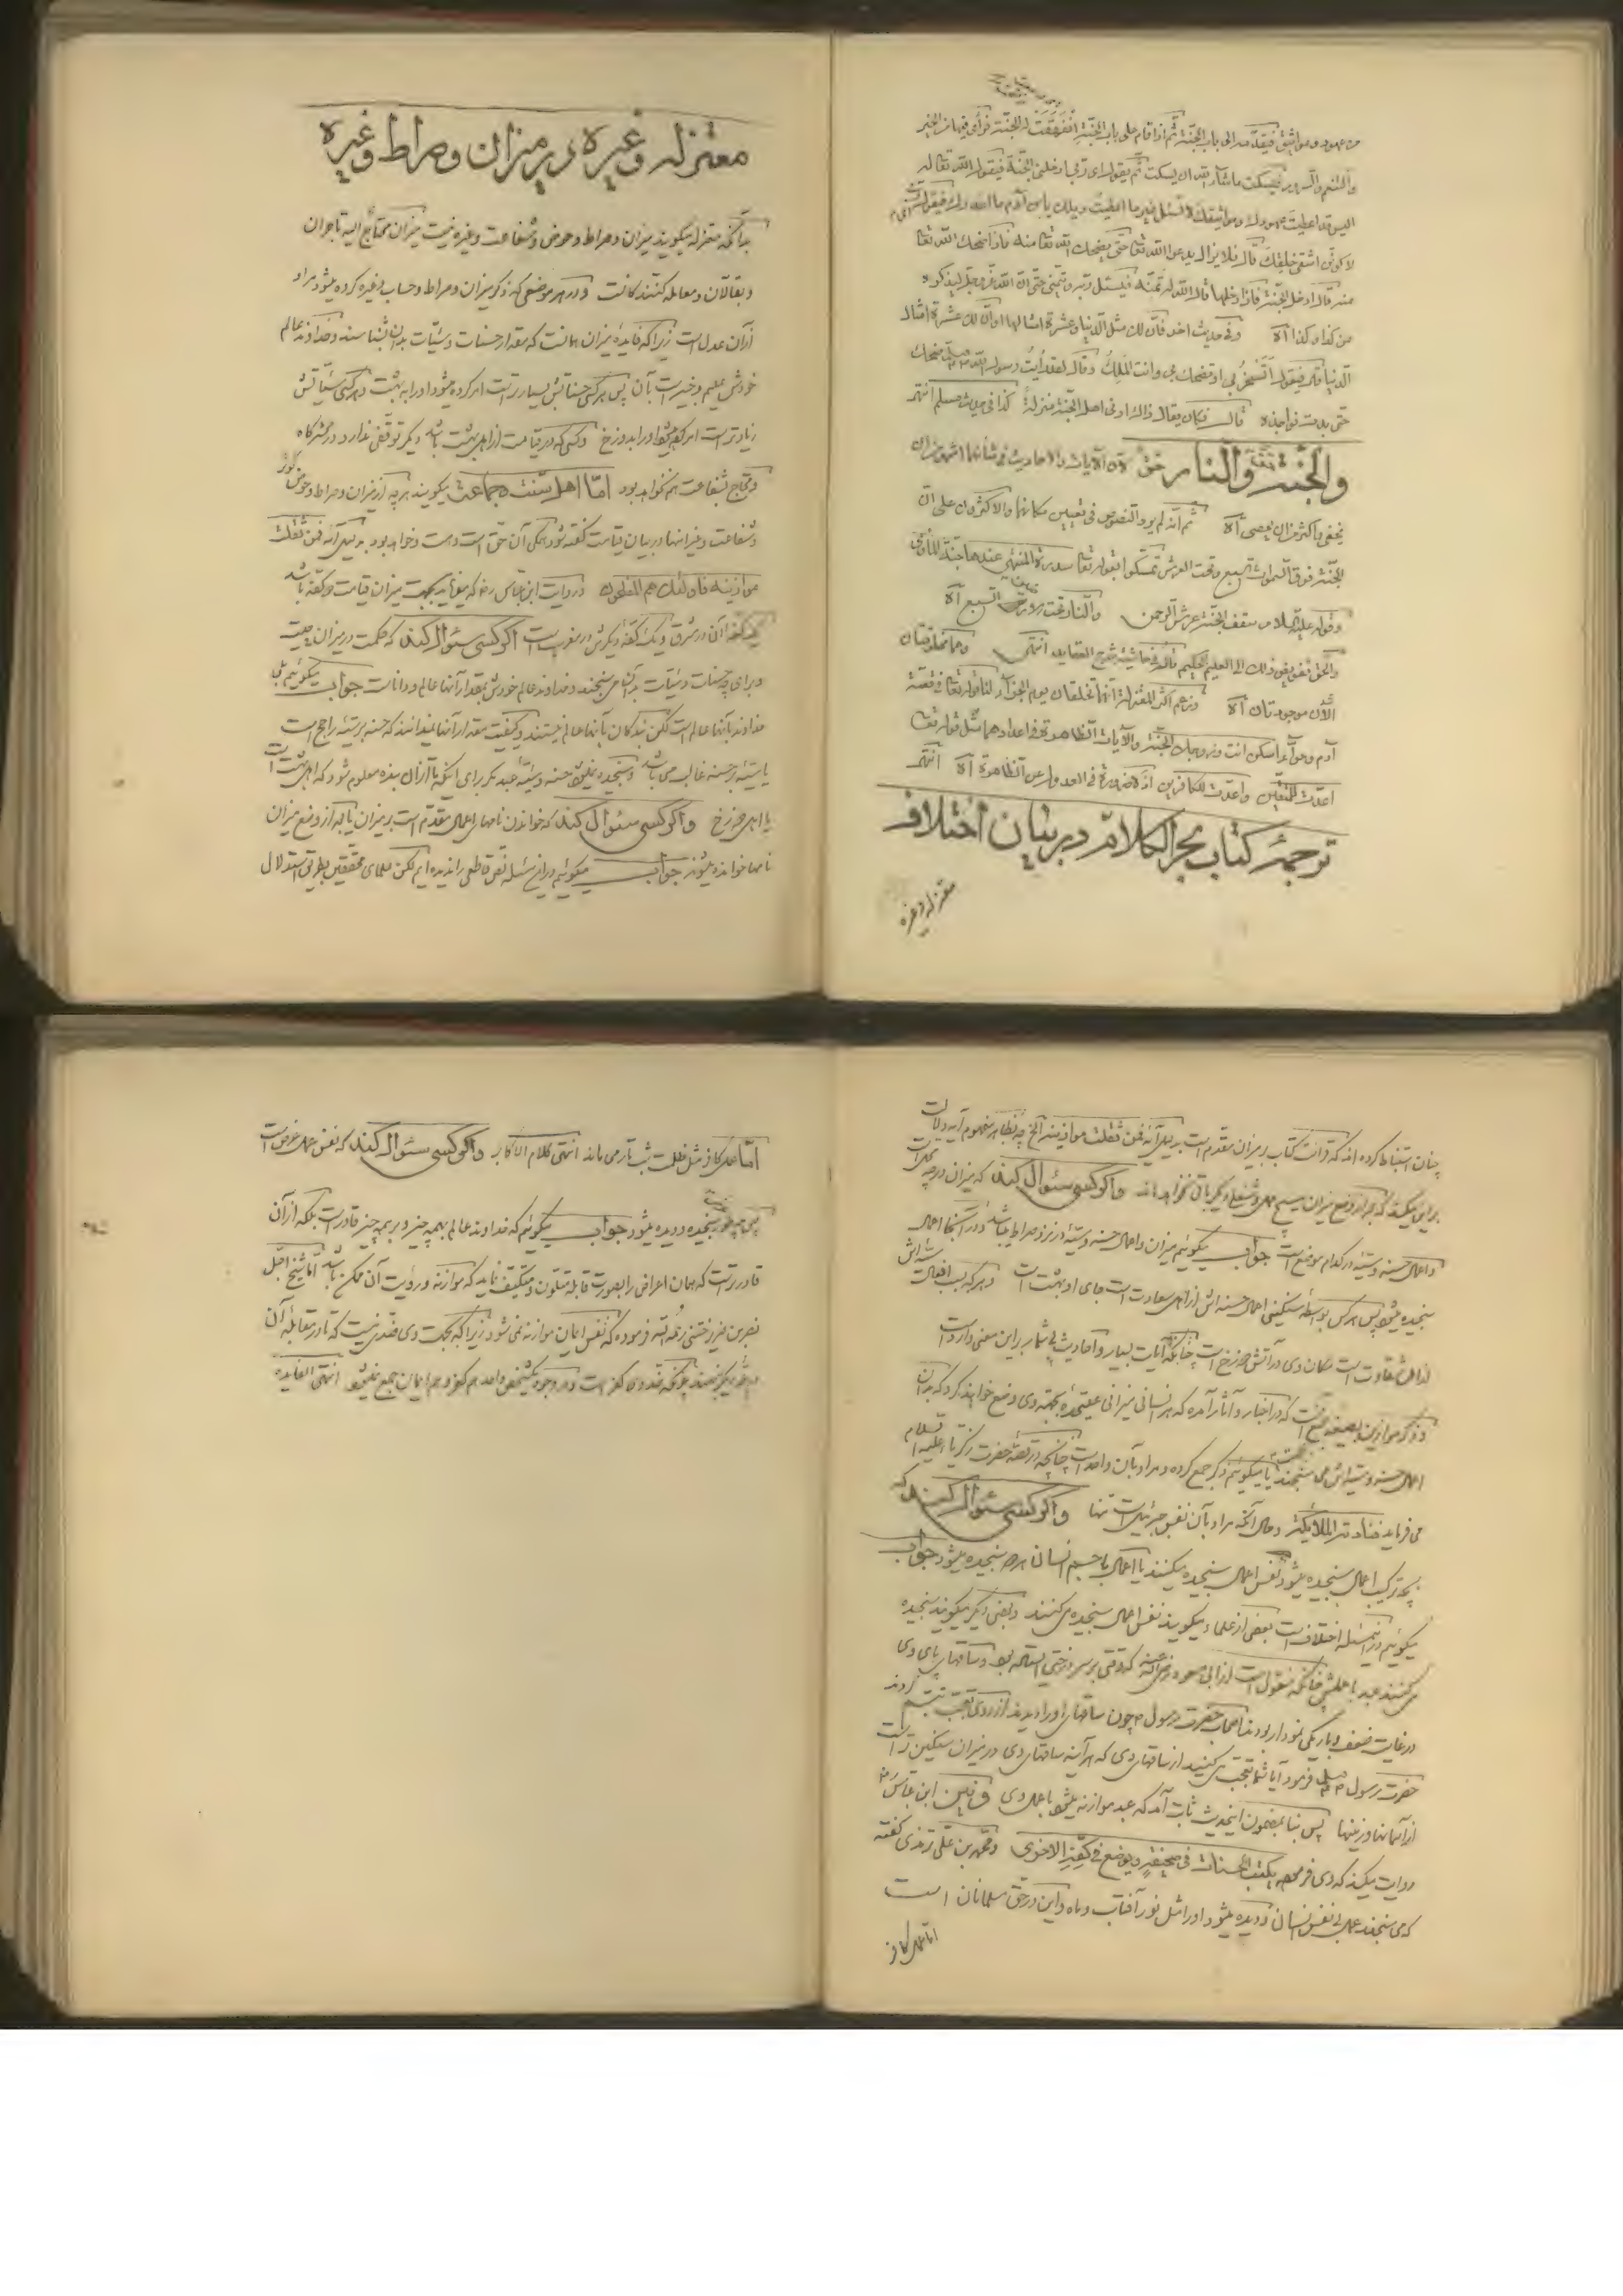 من عهود ومواثيق فيقدمه الى باب الجنة ثم اذا قام على باب الجنة انفهقت له الجنة فرأى فيها من الخير
والسرور فيسكت ما شاء الله ان يسكت ثم يقول اى ربى ادخلنى الجنة فيقول الله تعا له
اليس قد اعطيت عهودك ومواثيقك لا تسئل غير ما اعطيت ويلك يابن آدم ما اغدرك فيقول
لا اكونن اشقى خلقك قال فلا يزال يدعو الله تعا حتى يضحك الله تعا منه فاذا ضحك الله تعا
منه قال ادخل الجنة فاذا دخلها قال الله له تمنه فيسئل ربه ويتمنى حتى ان الله عز وجل ليذكره
من كذا وكذا آه وفى حديث آخر فان لك مثل الدنيا وعشرة امثالها او ان لك عشرة امثال
الدنيا قال فيقول اتسخر بى او تضحك بى وانت الملك وقال لقد رأيت رسول الله ضحك
حتى بدت نواجذه قال فكان يقال ذلك ادنى اهل الجنة منزلة كذا فى حديث مسلم انتهى
والجنة حق والنار حق لان الآيات والاحاديث فى شأنهما اشهر من ان
يخفى واكثر من ان يحصى آه ثم انه لم يرد النصوص فى تعيين مكانهما والاكثرون على ان
الجنة فوق السموات السبع وتحت العرش تمسكوا بقوله تعا سدرة المنتهى عندها جنة المأوى
وقوله عليه السلام سقف الجنة عرش الرحمن والنار تحت السبع آه
والحق تفويض ذلك الى العليم الحكيم قاله فى حاشية شرح العقايد انتهى وهما مخلوقتان
الآن موجودتان آه وزعم اكثر المعتزلة انهما تخلقان يوم الجزاء لنا قوله تعا فى قصة
آدم وحواء اسكن انت وزوجك الجنة والآيات الظاهرة فى اعدادهما مثل قوله تعا
اعدت للمتقين واعدت للكافرين اذ لا ضرورة فى العدول عن الظاهرة آه انتهى
ترجمۀ كتاب بحر الكلام در بيان اختلاف
معتزله وغيره
معتزله وغيره در ميزان وصراط وغيره
بدانكه معتزله ميگويند ميزان وصراط وحوض وشفاعت وغيره نيست ميزان محتاج اليه تاجران
وبقالان ومعامله كنندگانست ودر هر موضعى كه ذكر ميزان وصراط وحساب وغيره كرده ميشود مراد
از آن عدل است زيرا كه فايدۀ ميزان همانست كه مقدار حسنات وسيئات بدان بشناسند وخداوند عالم
خودش عليم وخبير است بآن پس هر كس حسناتش بسيارتر است امر كرده ميشود او را به بهشت وهر كس سيئاتش
زيادتر است امر كرده ميشود او را بدوزخ وكسى كه در قيامت از اهل بهشت باشد ديگر توقفى ندارد در محشرگاه
ومحتاج بشفاعت هم نخواهد بود اما اهل سنت وجماعت ميگويند هرچه از ميزان وصراط وحوض كوثر
وشفاعت وغير اينها در بيان قيامت گفته شود همگى آن حق است وهست وخواهد بود بدليل آيه فمن ثقلت
موازينه فاولئك هم المفلحون وروايت ابن عباس رض كه ميفرمايد بجهت ميزان قيامت دو كفه باشد
يك كفه آن در مشرق ويك كفۀ ديگرش در مغرب است اگر كسى سئوال كند كه حكمت در ميزان چيست
وبراى چه حسنات وسيئات بدان مى سنجند وخداوند عالم خودش بمقدار آنها عالم وداناست جواب ميگوئيم بلى
خداوند بآنها عالم است لكن بندگان بآنها عالم نيستند وكيفيت مقدار آنها نميدانند كه حسنه بر سيئه راجح است
يا سيئه بر حسنه غالب مى باشد وسنجيده ميشود حسنه وسيئۀ عبد مگر براى اينكه تا از آن بنده معلوم شود كه اهل بهشت است
يا اهل دوزخ واگر كسى سئوال كند كه خواندن نامهاى اعمال مقدم است بر ميزان يا بعد از وضع ميزان
نامها خوانده ميشوند جواب ميگوئيم در اين مسئله نص قاطعى را نديده ايم لكن علماى محققين بطريق استدلال
چنان استنباط كرده اند كه قرائت كتاب بر ميزان مقدم است بدليل آيه فمن ثقلت موازينه الخ چه بظاهر مفهوم آيه دلالت
بر اين ميكند كه بعد از وضع ميزان هيچ عمل وشغل ديگر باقى نخواهد ماند واگر كسى سئوال كند كه ميزان در چه محل است
واعمال حسنه وسيئه در كدام موضع است جواب ميگوئيم ميزان واعمال حسنه وسيئه در نزد صراط ميباشد ودر آنجا اعمال
سنجيده ميشود پس هر كس بواسطۀ سنگينى اعمال حسنه اش از اهل سعادت است جاى او بهشت است وهر كه بسبب افعال سيئه اش
از اهل شقاوت است مكان وى در آتش دوزخ است چنانكه آيات بسيار واحاديث بى شمار بر اين معنى وارد است
وذكر موازين بصيغه جمع است كه در اخبار وآثار آمده كه هر انسانى ميزانى عليحده بجهت وى وضع خواهند كرد كه بدان
اعمال حسنه وسيئه اش مى سنجند يا ميگوئيم ذكر جمع كرده ومراد بآن واحد است چنانچه در قصۀ حضرت زكريا عليه السلام
مى فرمايد فنادته الملائكة وحال آنكه مراد بآن نفس جبرئيل است تنها واگر كسى سئوال كند كه
بچه تركيب اعمال سنجيده ميشود نفس اعمال سنجيده ميكنند يا اعمال با جسم انسان سنجيده ميشود جواب
ميگوئيم در اين مسئله اختلاف است بعضى از علماء ميگويند نفس اعمال سنجيده مى كنند وبعضى ديگر ميگويند سنجيده
مى كنند عبد با عملش چنانكه منقول است از ابى مسعود رضى الله عنه كه وقتى بر سر درختى استاده بود وساقهاى پاى وى
در غايت ضعف وباريكى نمودار بودند اصحاب حضرت رسول چون ساقهاى او را ديدند از روى تعجب تبسم كردند
حضرت رسول صلعم فرمود آيا شما تعجب مى كنيد از ساقهاى وى كه هر آينه ساقهاى وى در ميزان سنگين تر است
از آسمانها وزمينها پس بنا بمضمون اين حديث ثابت آمد كه عبد موازنه ميشود با عمل وى ابن عباس رض
روايت ميكند كه وى فرموده يكتب الحسنات فى صحيفة ويوضع فى كفة الاخرى ومحمد بن على ترمذى گفته
كه مى سنجند عمل بى نفس انسان وديده ميشود او را مثل نور آفتاب وماه واين در حق مسلمانان است
اما عمل كافر
اما عمل كافر مثل ظلمت شب تار مى ماند انتهى كلام الاكابر واگر كسى سئوال كند كه نفس عمل عرض است
پس چه طور سنجيده وديده ميشود جواب ميگوئيم كه خداوند عالم بهمه چيز وبر همه چيز قادر است بلكه از آن
قادرتر است كه همان اعراض را بصورت قابله متلون ومتكيف نمايد كه موازنه ورؤيت آن ممكن باشد اما شيخ اجل
نصر بن رحمه الله فرموده كه نفس ايمان موازنه نمى شود زيرا كه بجهت وى ضدى نيست كه تا در مقابلۀ آن
چونكه ضد وى كفر است ودر وجود يكشخص واحد هم كفر وهم ايمان جمع نميشود انتهى الفايده